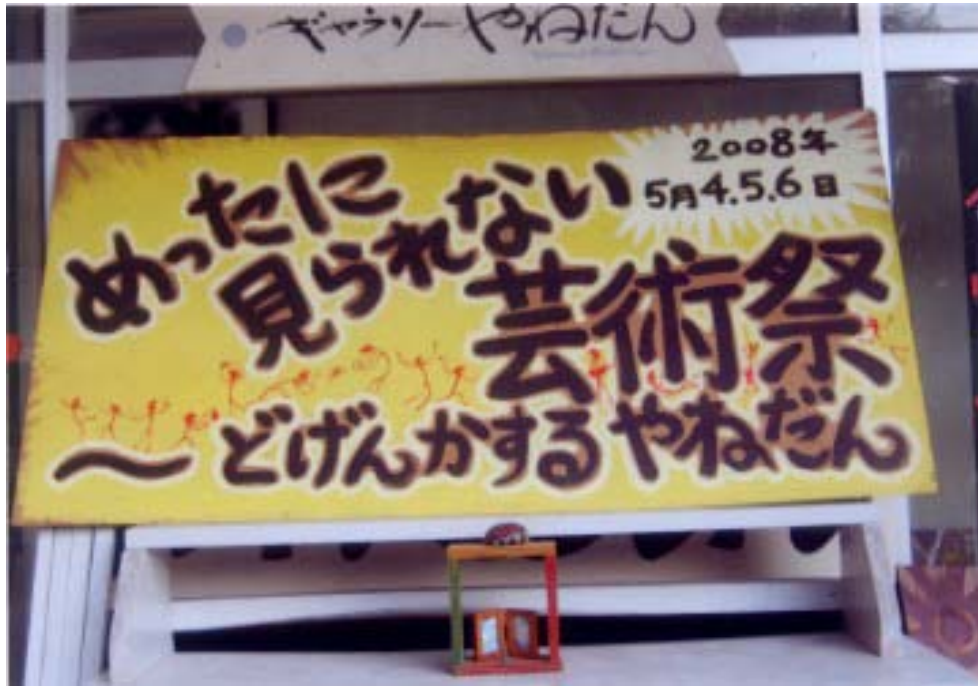 ギャラリーやねだん
2008年
5月4.5.6日
めったに
見られない
芸術祭
〜どげんかするやねだん